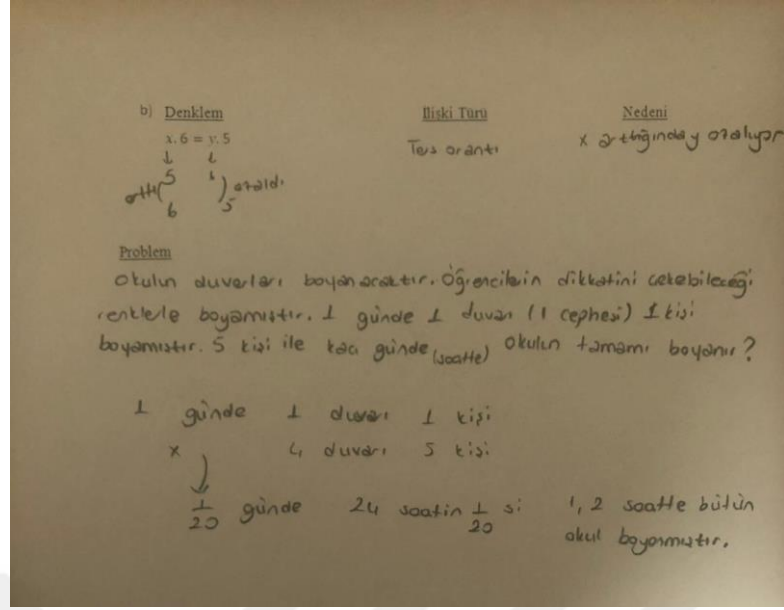 b) Denklem İlişki Türü Nedeni
x.6 = y.5 Ters orantı x arttığında y azalıyor
↓ ↓
arttı( 5 6 ) azaldı
6 5
Problem
Okulun duvarları boyanacaktır. Öğrencilerin dikkatini çekebileceği
renklerle boyamıştır. 1 günde 1 duvarı (1 cephesi) 1 kişi
boyamıştır. 5 kişi ile kaç günde (saatte) okulun tamamı boyanır?
1 günde 1 duvarı 1 kişi
x 4 duvarı 5 kişi
1/20 günde 24 saatin 1/20 si 1,2 saatte bütün
okul boyanmıştır.